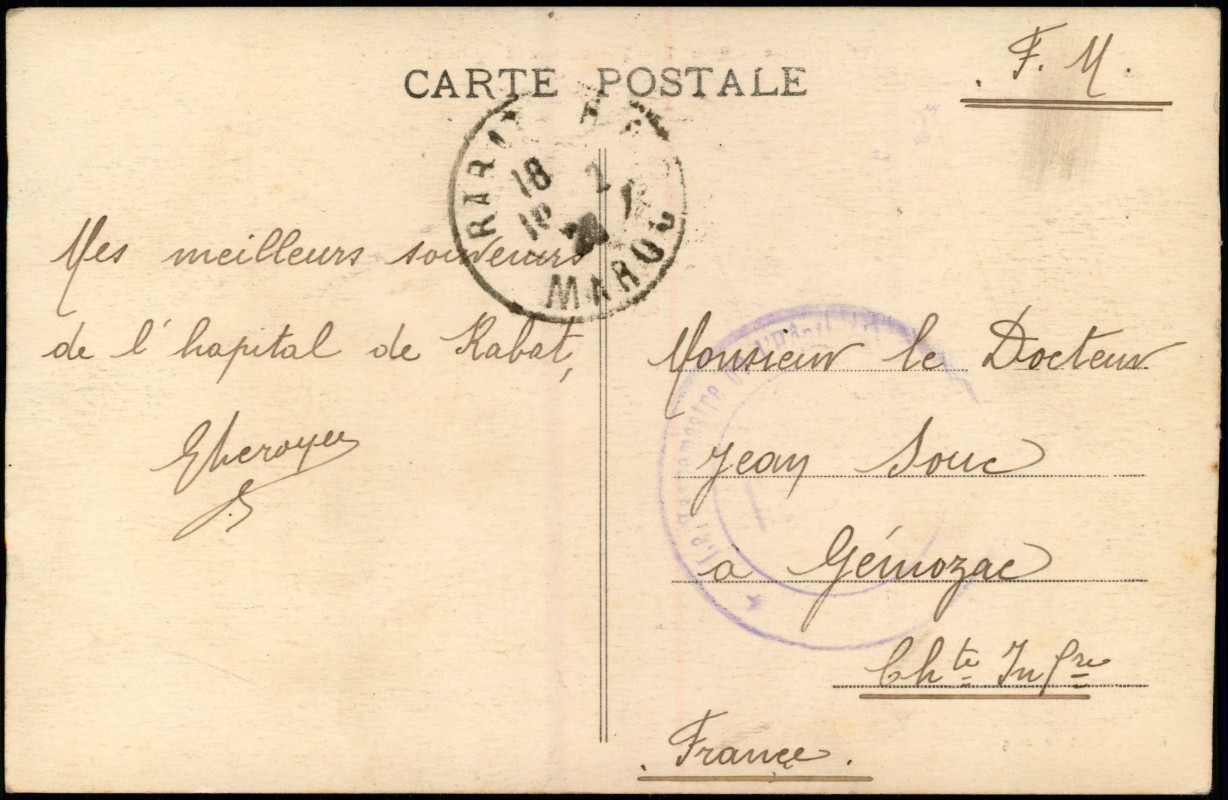 CARTE POSTALE
F. M.
RABAT
18 2
MAROC
Mes meilleurs souvenirs
de l'hopital de Rabat,
Monsieur le Docteur
Jean Souc
à Gémozac
Chte Infre
France.